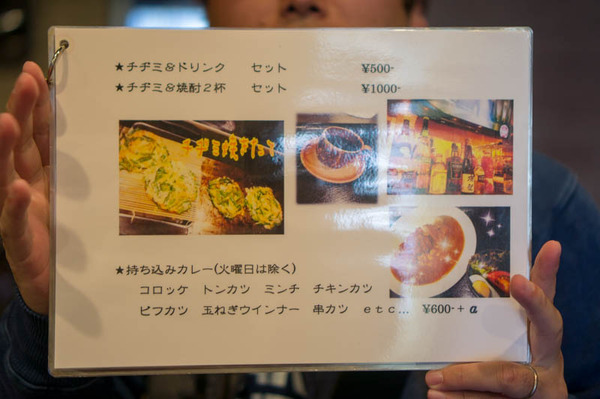 ★チヂミ&ドリンク セット ¥500-
★チヂミ&焼酎2杯 セット ¥1000-
★持ち込みカレー(火曜日は除く)
コロッケ トンカツ ミンチ チキンカツ
ビフカツ 玉ねぎウインナー 串カツ etc... ¥600-+α